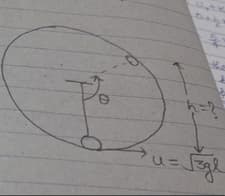 θ
h=?
u = √3gl